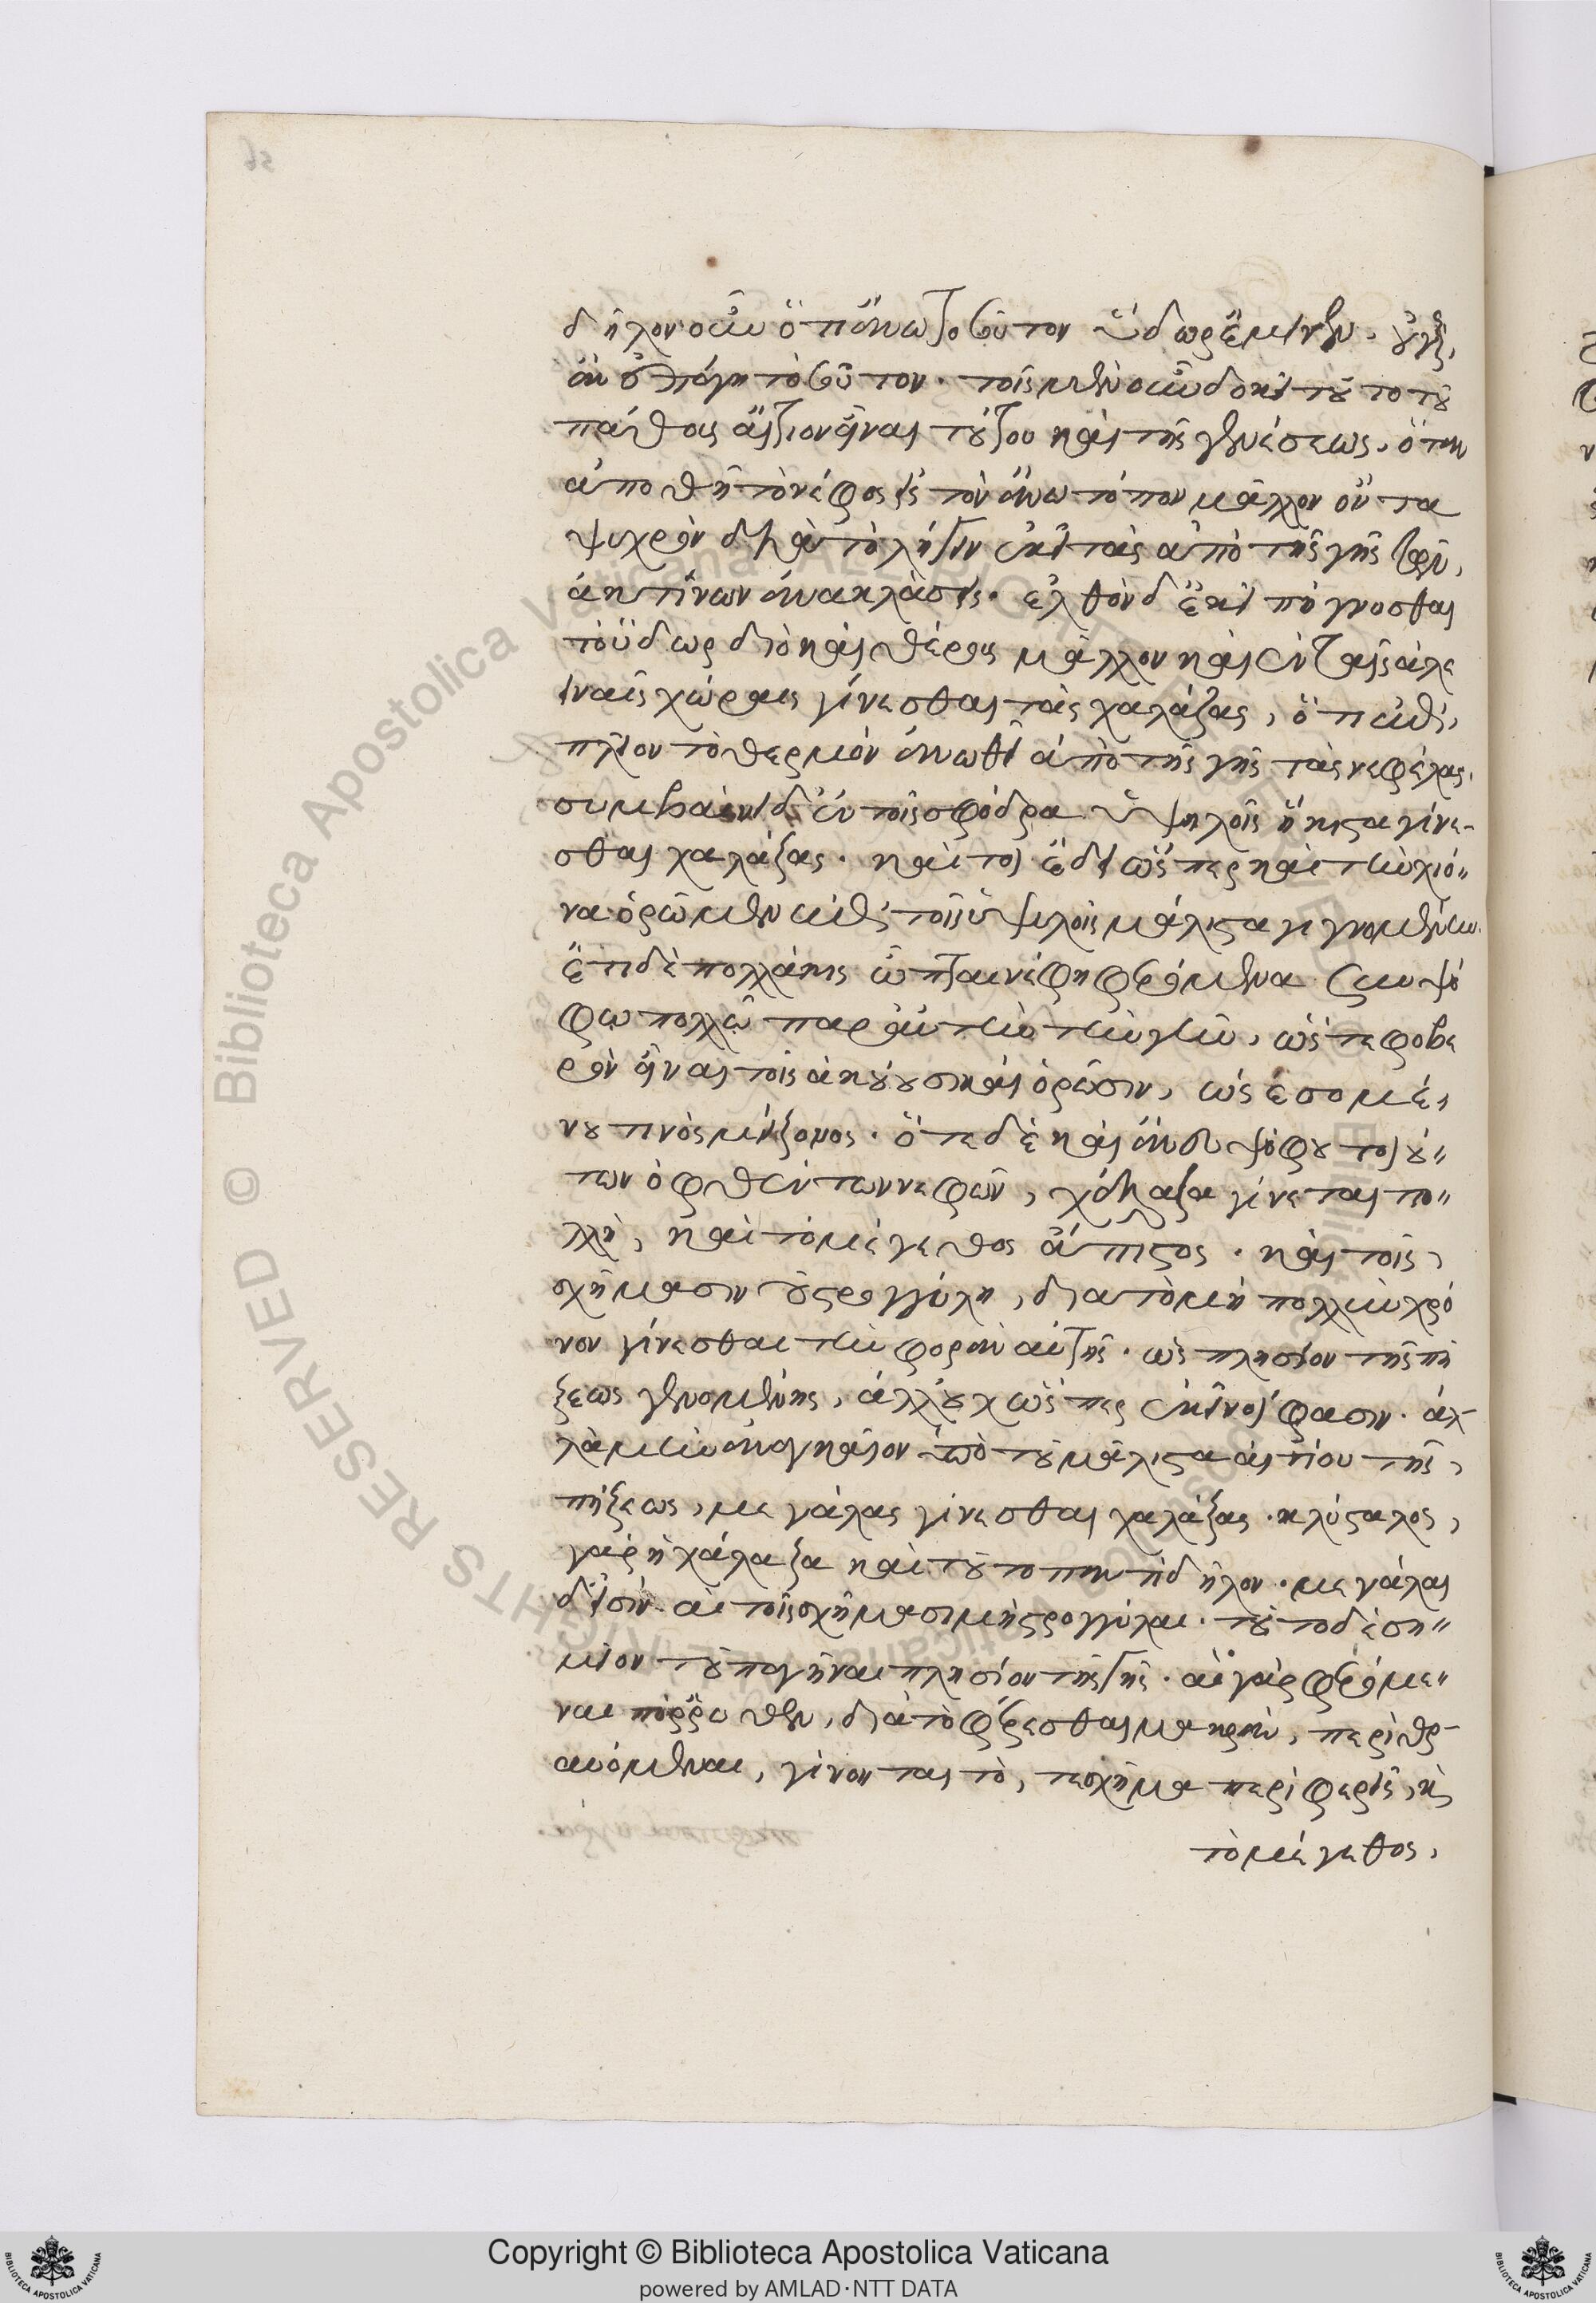 δῆλον οὖν ὅτι ἄνω τοσοῦτον ὕδωρ ἔμεινεν. οὐ γὰρ
ἂν ἐπάγη τοσοῦτον. τοῖς μὲν οὖν δοκεῖ τοῦτο τοῦ
πάθους αἴτιον εἶναι τούτου καὶ τῆς γενέσεως, ὅταν
ἀπωσθῇ τὸ νέφος εἰς τὸν ἄνω τόπον μᾶλλον ὄντα
ψυχρὸν διὰ τὸ λήγειν ἐκεῖ τὰς ἀπὸ τῆς γῆς τῶν
ἀκτίνων ἀνακλάσεις. ἐλθὸν δ' ἐκεῖ πήγνυσθαι
τὸ ὕδωρ διὸ καὶ θέρους μᾶλλον καὶ ἐν ταῖς ἀλε
ειναῖς χώραις γίνεσθαι τὰς χαλάζας, ὅτι ἐπὶ
πλεῖον τὸ θερμὸν ἀνωθεῖ ἀπὸ τῆς γῆς τὰς νεφέλας.
συμβαίνει δ' ἐν τοῖς σφόδρα ὑψηλοῖς ἥκιστα γίνε-
σθαι χαλάζας. καίτοι ἔδει ὥσπερ καὶ τὴν χιό-
να ὁρῶμεν ἐπὶ τοῖς ὑψηλοῖς μάλιστα γιγνομένην.
ἔτι δὲ πολλάκις ὦπται νέφη φερόμενα σὺν ψό
φῳ πολλῷ παρ' αὐτὴν τὴν γῆν, ὥστε φοβε
ρὸν εἶναι τοῖς ἀκούουσι καὶ ὁρῶσιν, ὡς ἐσομέ-
νου τινὸς μείζονος. ὁτὲ δὲ καὶ ἄνευ ψόφου τοιού-
των ὀφθέντων νεφῶν, χάλαζα γίνεται πο-
λλὴ, καὶ τὸ μέγεθος ἄπιστος. καὶ τοῖς
σχήμασιν οὐ στρογγύλη, διὰ τὸ μὴ πολλὺν χρό
νον γίνεσθαι τὴν φορὰν αὐτῆς. ὡς πλησίον τῆς πή
ξεως γενομένης, ἀλλ' οὐχ ὥσπερ ἐκεῖνοι φασιν. ἀλ-
λὰ μὴν ἀναγκαῖον ὑπὸ τοῦ μάλιστα αἰτίου τῆς
πήξεως, μεγάλας γίνεσθαι χαλάζας. κρύσταλος
γὰρ ἡ χάλαζα καὶ τοῦτο παντὶ δῆλον. μεγάλαι
δ' εἰσὶν αἱ τοῖς σχήμασι μὴ στρογγύλαι. τοῦτο δὲ ση-
μεῖον τοῦ παγῆναι πλησίον τῆς γῆς. αἱ γὰρ φερόμε-
ναι πόρρωθεν, διὰ τὸ φέρεσθαι μακρὰν, περιθρ-
αυόμεναι, γίνονται τό, τε σχῆμα περιφερεῖς, καὶ
τὸ μέγεθος,
Copyright © Biblioteca Apostolica Vaticana
powered by AMLAD·NTT DATA